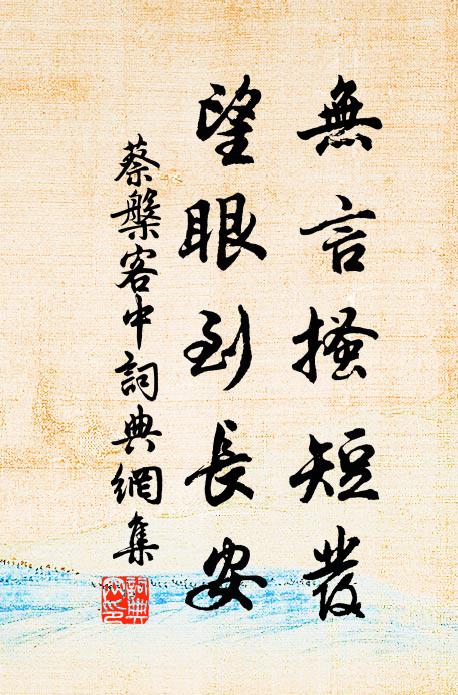 無言搔短發
望眼到長安
蔡槃客中詞典網集